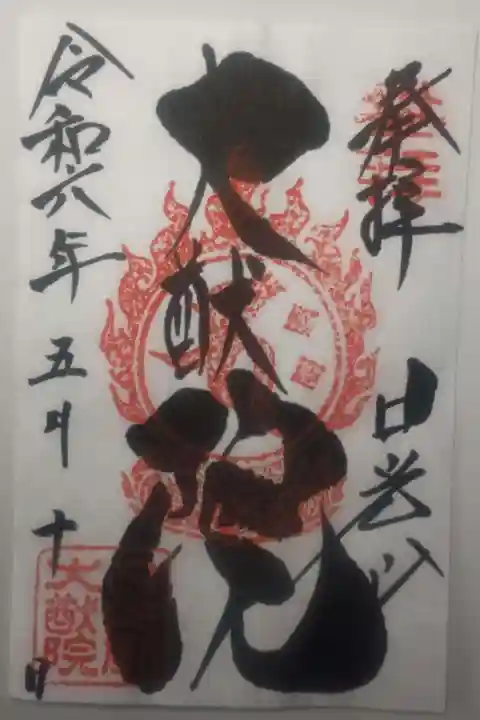 奉拝 日光山
大猷院
令和六年五月十日
大猷院